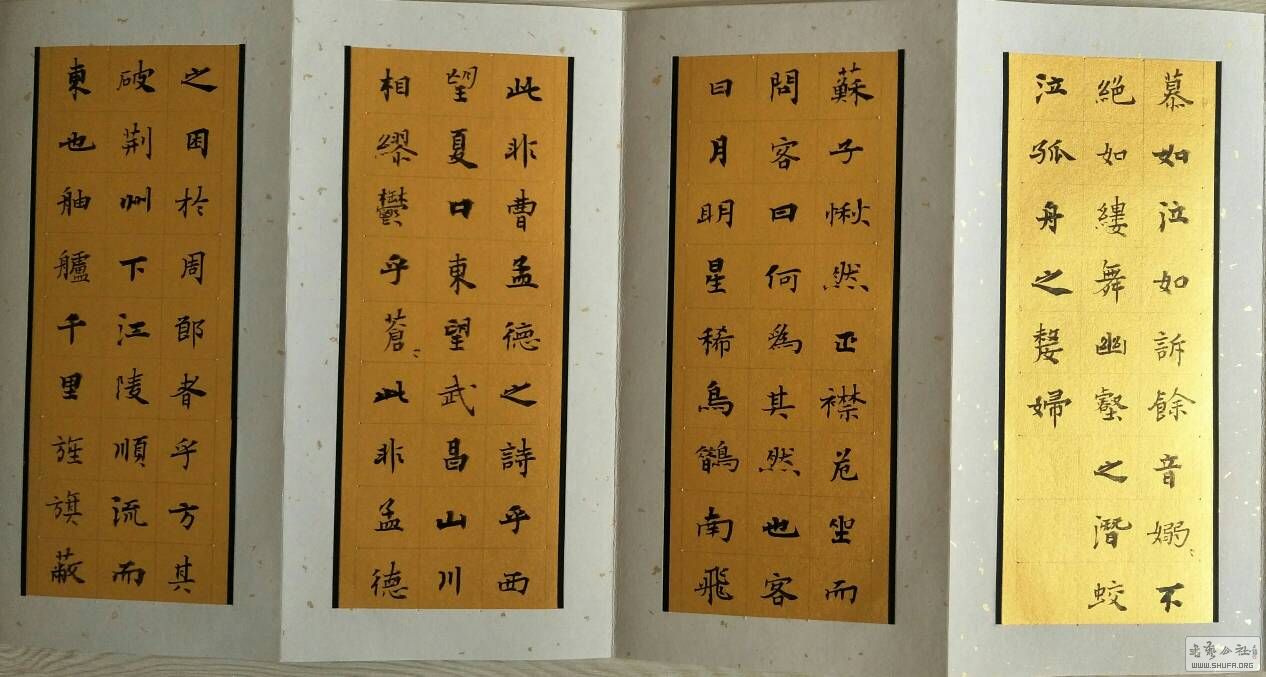 慕如泣如訴餘音嫋〻不
絕如縷舞幽壑之潛蛟
泣孤舟之嫠婦
蘇子愀然正襟危坐而
問客曰何爲其然也客
曰月明星稀烏鵲南飛
此非曹孟德之詩乎西
望夏口東望武昌山川
相繆鬱乎蒼〻此非孟德
之困於周郎者乎方其
破荊州下江陵順流而
東也舳艫千里旌旗蔽
書藝公社
WWW.SHUFA.ORG